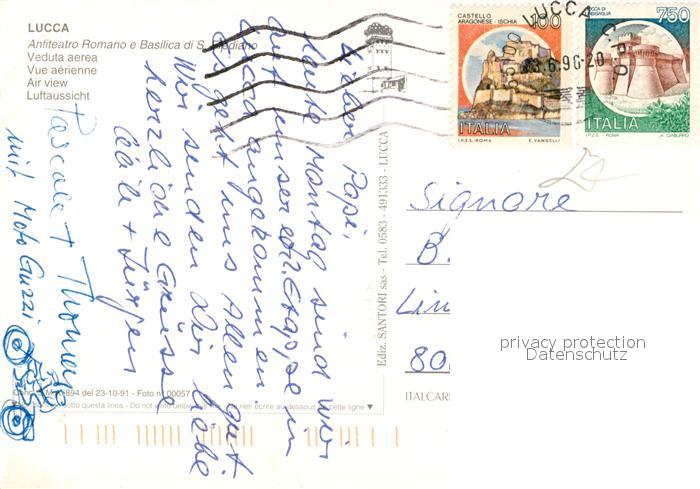 LUCCA
Anfiteatro Romano e Basilica di S. Frediano
Veduta aerea
Vue aérienne
Air view
Luftaussicht
Lieber Papi,
heute Montag sind wir
auf unserer 2. Etappe in
Lucca angekommen.
Es geht uns Allen gut
Wir senden dir liebe
herzliche Grüsse
+ Jürgen
Pascale + Thomas
mit Moto Guzzi
Ediz. SANTORI sas - Tel. 0583 - 491333 - LUCCA
CASTELLO
ARAGONESE - ISCHIA
700
ITALIA
I.P.Z.S. - ROMA E. VANGELLI
ROCCA DI
URBISAGLIA
750
ITALIA
I.P.Z.S. - ROMA
55100 LUCCA C.P.O.
3.6.96-20
Signore
B.
80
ITALCAR
894 del 23-10-91 - Foto n. 00057
sotto questa linea - Do not write below rien écrire au-dessous cette ligne
privacy protection
Datenschutz